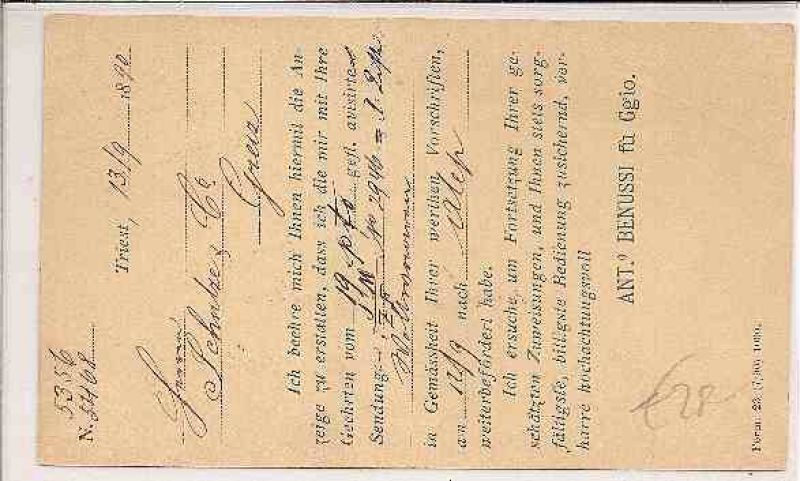 5356
N. 5462
Triest, 13/9 1890
Herren
Schulde & Co
Greiz
Ich beehre mich Ihnen hiermit die An-
zeige zu erstatten, dass ich die mir mit Ihre
Geehrten vom 19 pto gefl. avisirte
Sendung:
No 2946 = 1
Wollwaaren
in Gemässheit Ihrer werthen Vorschriften,
am 12/9 nach Alep
weiterbefördert habe.
Ich ersuche, um Fortsetzung Ihrer ge-
schätzten Zuweisungen, und Ihnen stets sorg-
fältigste, billigste Bedienung zusichernd, ver-
harre hochachtungsvoll
ANT.o BENUSSI fù Ggio.
€28
Form. 23. (7.90) 1000.